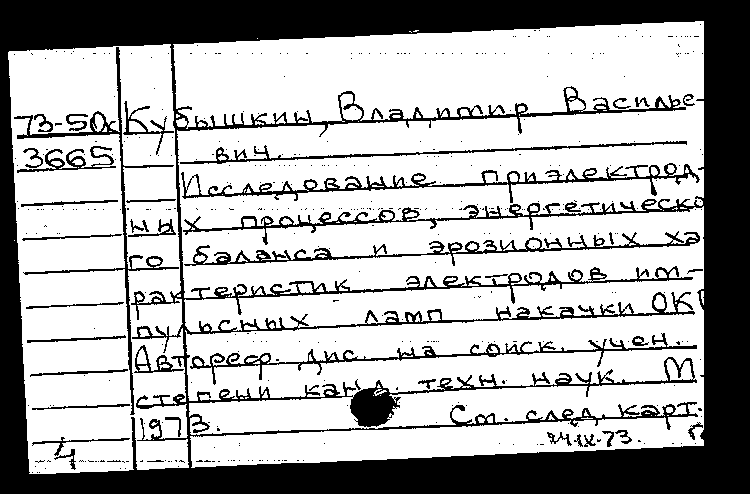 73-50с Кубышкин, Владимир Василье-
3665 вич.
Исследование приэлектрод-
ных процессов, энергетическо
го баланса и эрозионных ха
рактеристик электродов им-
пульсных ламп накачки ОКГ
Автореф. дис. на соиск. учен.
степени канд. техн. наук. М.
1973. См. след. карт.
4 24.IX.73.